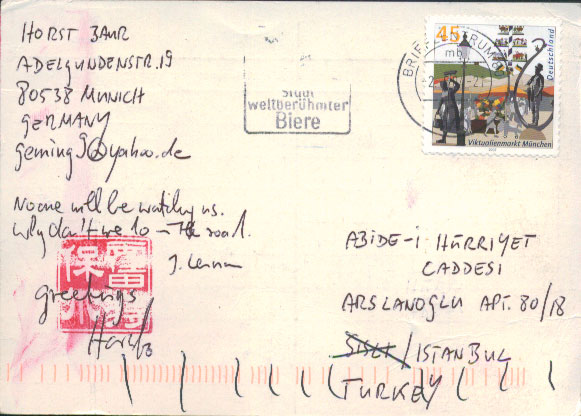 HORST BAUR
ADELGUNDENSTR. 19
80538 MUNICH
GERMANY
geming9@yahoo.de
No one will be watching us.
Why don't we do it in the road.
J. Lennon
greetings
Horst
45
Deutschland
Viktualienmarkt München
BRIEFZENTRUM
mb
Stadt
weltberühmter
Biere
ABIDE-I HÜRRIYET
CADDESI
ARSLANOGLU APT. 80/18
SISLI / ISTANBUL
TURKEY